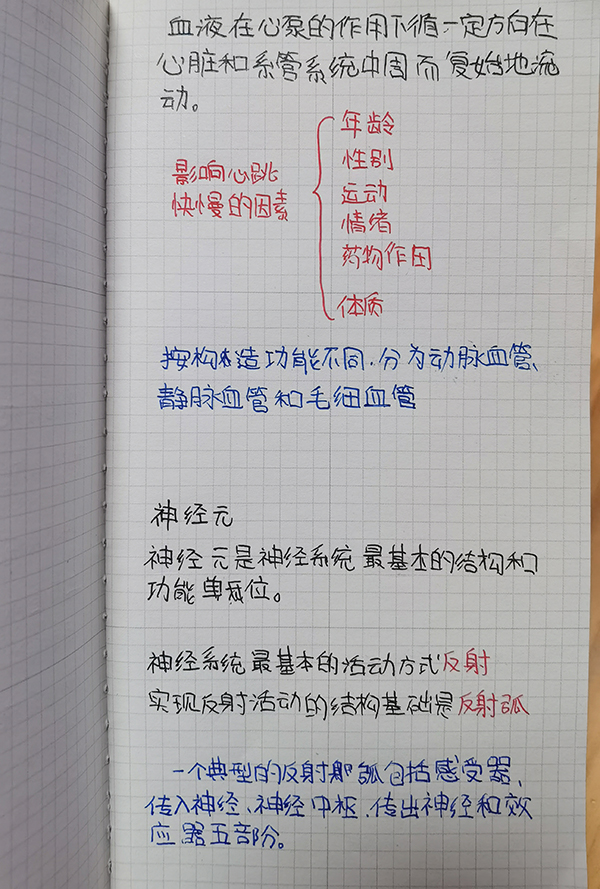 血液在心泵的作用下循一定方向在
心脏和系管系统中周而复始地流
动。
影响心跳
快慢的因素
年龄
性别
运动
情绪
药物作用
体质
按构造功能不同.分为动脉血管、
静脉血管和毛细血管
神经元
神经元是神经系统最基本的结构和
功能单位。
神经系统最基本的活动方式反射
实现反射活动的结构基础是反射弧
一个典型的反射弧包括感受器、
传入神经、神经中枢、传出神经和效
应器五部分。